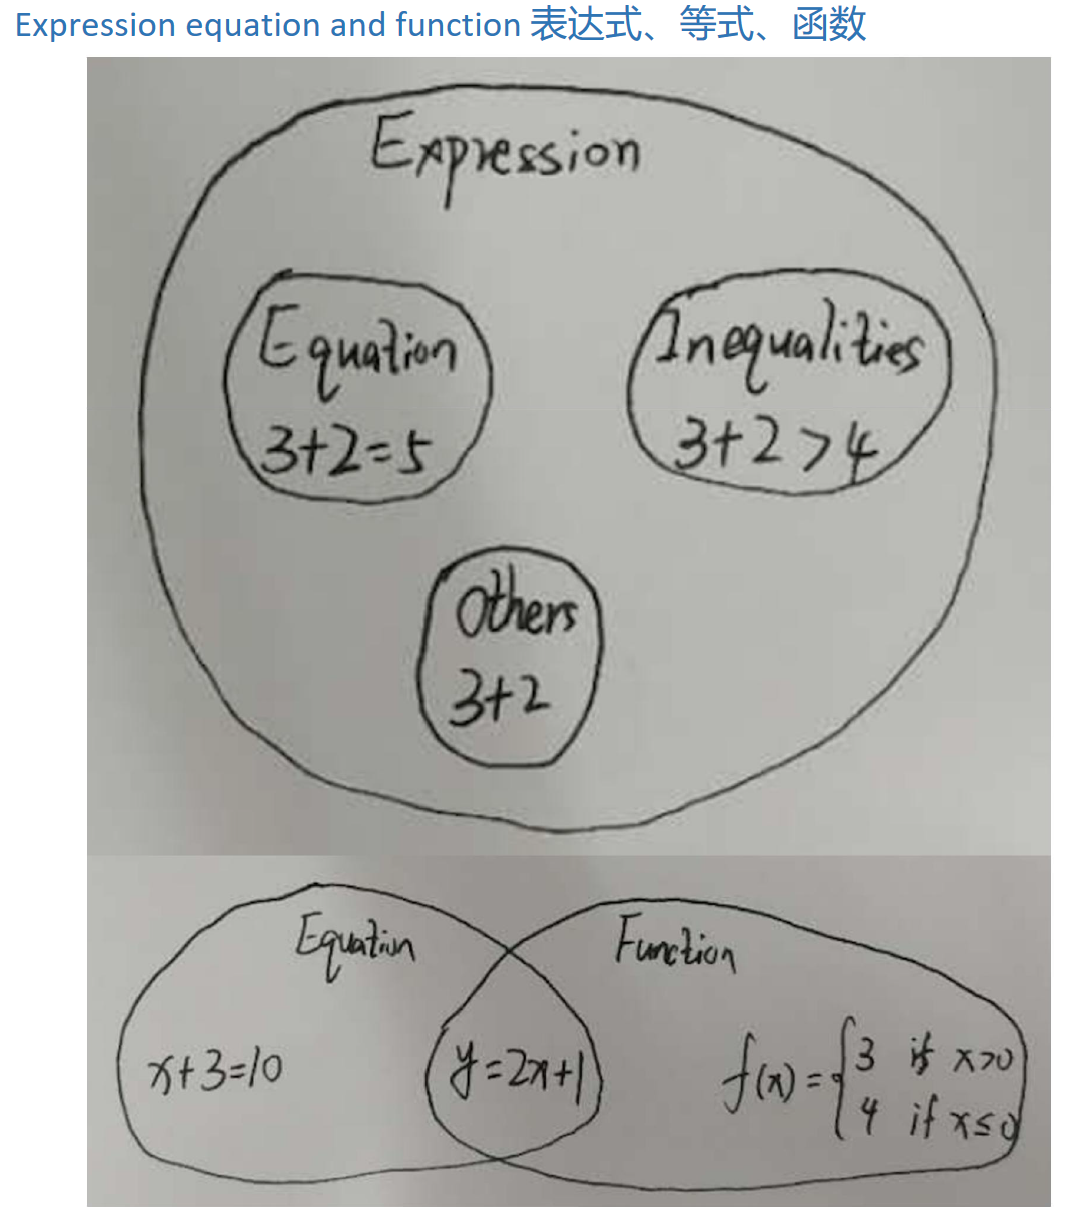 Expression equation and function 表达式、等式、函数
Expression
Equation
3+2=5
Inequalities
3+2>4
Others
3+2
Equation
Function
x+3=10
y=2x+1
f(x)={3 if x>0
4 if x≤0